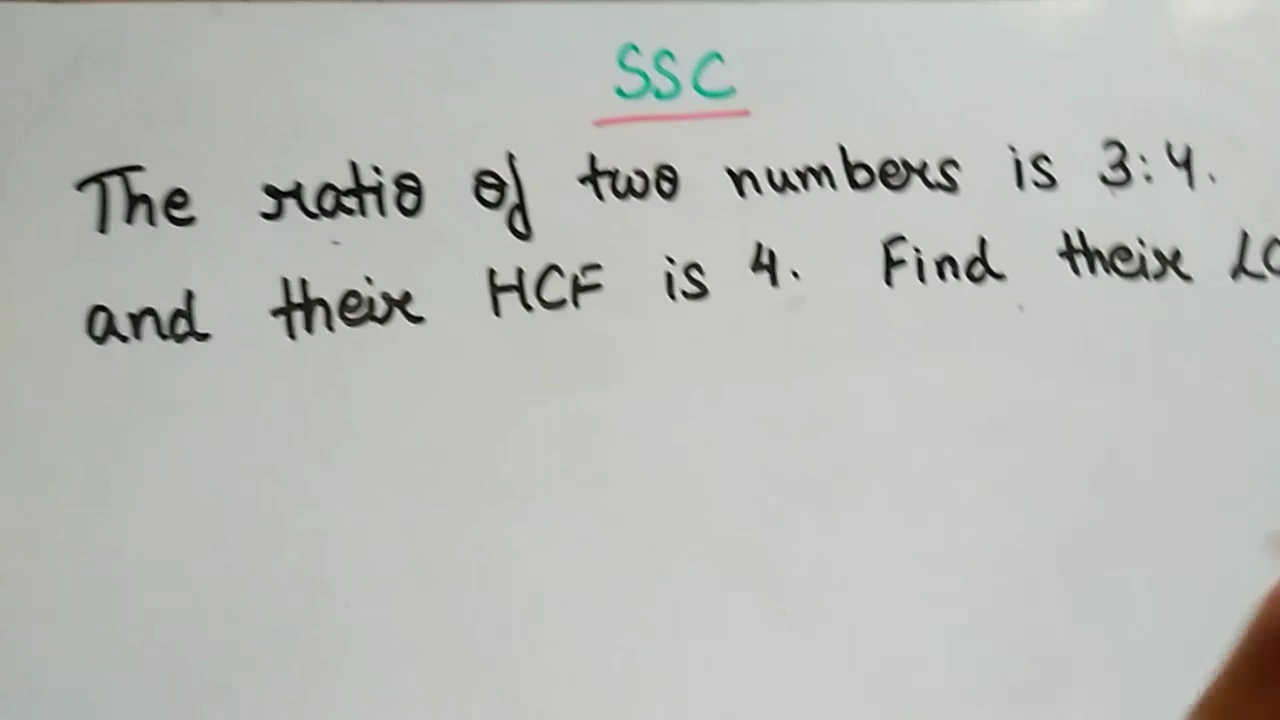 SSC
The ratio of two numbers is 3:4.
and their HCF is 4. Find their LC